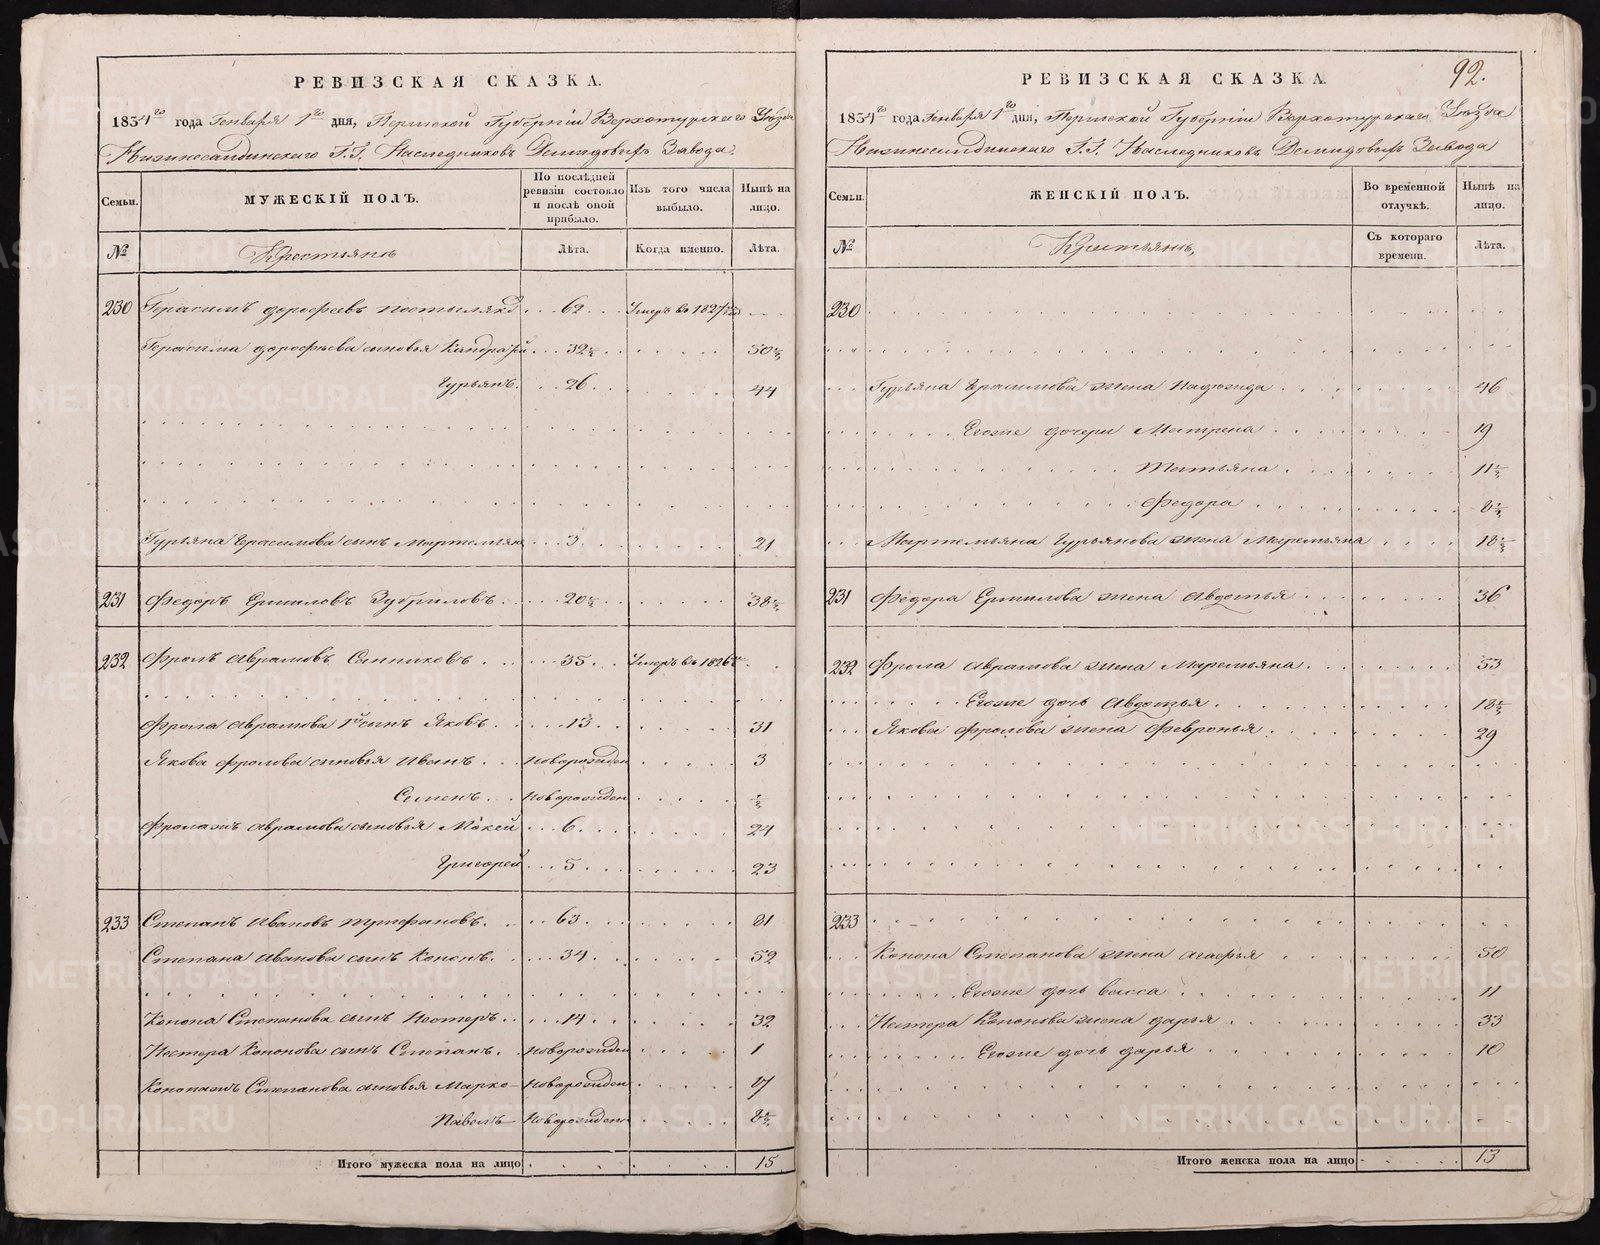 РЕВИЗСКАЯ СКАЗКА.
1834го года Генваря 1го дня, Пермской Губернiи Верхотурскаго Уѣзда
Нижнесалдинскаго Г.Г. Наслѣдниковъ Демидовыхъ Завода.
Семьи.
МУЖЕСКІЙ ПОЛЪ.
По послѣдней ревизіи состояло и послѣ оной прибыло.
Изъ того числа выбыло.
Нынѣ на лицо.
№
Крестьянъ
Лѣта.
Когда именно.
Лѣта.
230 Герасимъ Дорофѣевъ 62 Умеръ въ 1827
Герасима Дорофѣева сыновья Кандратей 32½ 50½
Гурьянъ 26 44
Гурьяна Герасимова сынъ Мартемьянъ 3 21
231 Федоръ Ермиловъ Зубриловъ 20½ 38½
232 Фролъ Аврамовъ Санниковъ 35 Умеръ въ 1826
Фрола Аврамова 1й сынъ Яковъ 13 31
Якова Фролова сыновья Иванъ Новорожден 3
Семенъ Новорожден ½
Фролажъ Аврамова сыновья Мокей 6 24
Григорей 5 23
233 Степанъ Ивановъ Трифановъ 63 81
Степана Иванова сынъ Кононъ 34 52
Конона Степанова сынъ Нестеръ 14 32
Нестера Кононова сынъ Степанъ Новорожден 1
Кононажъ Степанова сыновья Марко Новорожден 17
Павелъ Новорожден 8½
Итого мужеска пола на лицо 15
92.
РЕВИЗСКАЯ СКАЗКА.
1834го года Генваря 1го дня, Пермской Губернiи Верхотурскаго Уѣзда
Нижнесалдинскаго Г.Г. Наслѣдниковъ Демидовыхъ Завода
Семьи.
ЖЕНСКІЙ ПОЛЪ.
Во временной отлучкѣ.
Нынѣ на лицо.
№
Крестьянъ,
Съ котораго времени.
Лѣта.
230
Гурьяна Герасимова жена Надежда 46
Егоже дочери Матрена 19
Татьяна 11½
Федора 8½
Мартемьяна Гурьянова жена Маремьяна 18½
231 Федора Ермилова жена Авдотья 36
232 Фрола Аврамова жена Маремьяна 53
Егоже дочь Авдотья 18½
Якова Фролова жена Февронья 29
233
Конона Степанова жена Агафья 50
Егоже дочь Васса 11
Нестера Кононова жена Дарья 33
Егоже дочь Дарья 10
Итого женска пола на лицо 13
METRIKI.GASO-URAL.RU